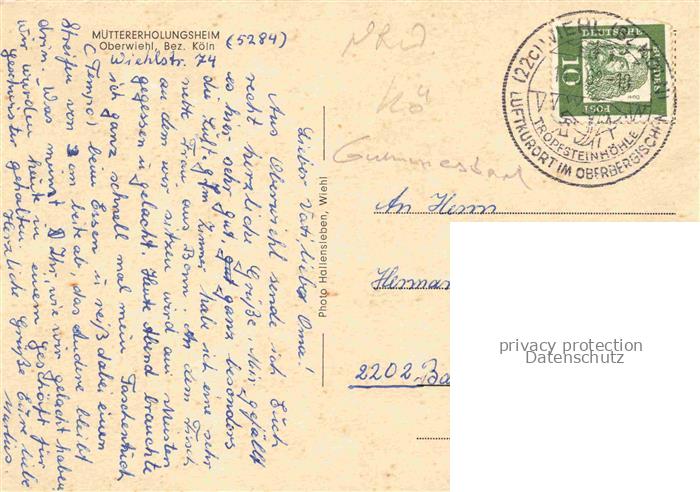 MÜTTERERHOLUNGSHEIM
Oberwiehl, Bez. Köln
(5284)
Wiehlstr. 74
Lieber Vati, liebe Oma!
Aus Oberwiehl sende ich Euch
recht herzliche Grüße. Mir gefällt
es hier sehr gut, ganz besonders
die Luft. Im Zimmer habe ich eine sehr
nette Frau aus Bonn. An dem Tisch
an dem wir sitzen wird am meisten
gegessen u. gelacht. Heute Abend brauchte
ich ganz schnell mal mein Taschentuch
(Tempo) beim Essen u. reiß dabei einen
Streifen von 3 cm breite ab, das Andere bleibt
drin. Was meinst Ihr, wie wir gelacht haben
wir wurden heute in einem Geschäft für
Geschwister gehalten.
Herzliche Grüße Eure liebe
Photo Hallensleben, Wiehl
NRW
Kö
Gummersbach
(22c) WIEHL
LUFTKURORT IM OBERBERGISCHEN
TROPFSTEINHÖHLE
DEUTSCHE
BUNDES
POST
10
An Herrn
Herman
2202 Ba
privacy protection
Datenschutz